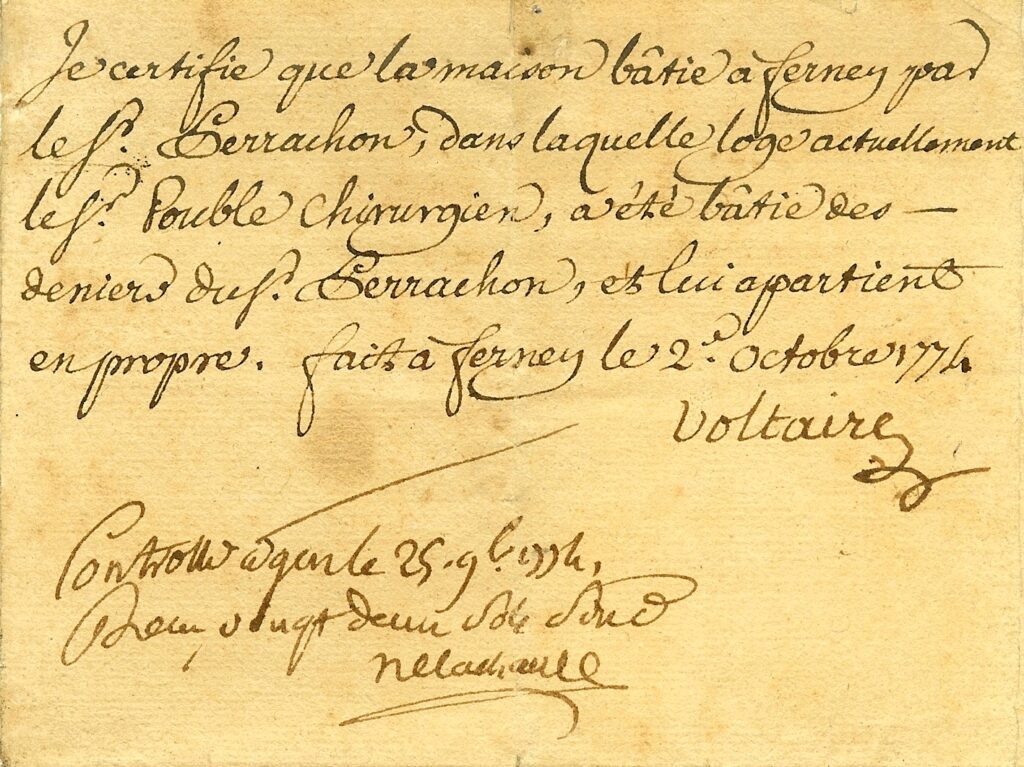 Je certifie que la maison bâtie à ferney par
le Sr. Perrachon, dans laquelle loge actuellement
le Sr. Pouble Chirurgien, a été bâtie des —
deniers du Sr. Perrachon, et lui apartient
en propre. fait à ferney le 2e. Octobre 1774
Voltaire
Controllé a gex le 25. 9b. 1774.
Reçu vingt deux sols